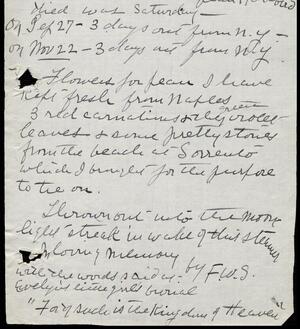 died was Saturday
On Sep 27 - 3 days out from N.Y -
on Nov 22 - 3 days out from N.Y.
Flowers for Jean I have
kept fresh from Naples
green
3 red carnations & the violet
leaves & some pretty stones
from the beach at Sorrento
which I brought for the purpose
to tie on.
Thrown out into the moon
light streak in wake of this steamer
in loving memory
by F.W.G.
with the words said at
Evelyn's little girl's burial
"For of such is the Kingdom of Heaven"